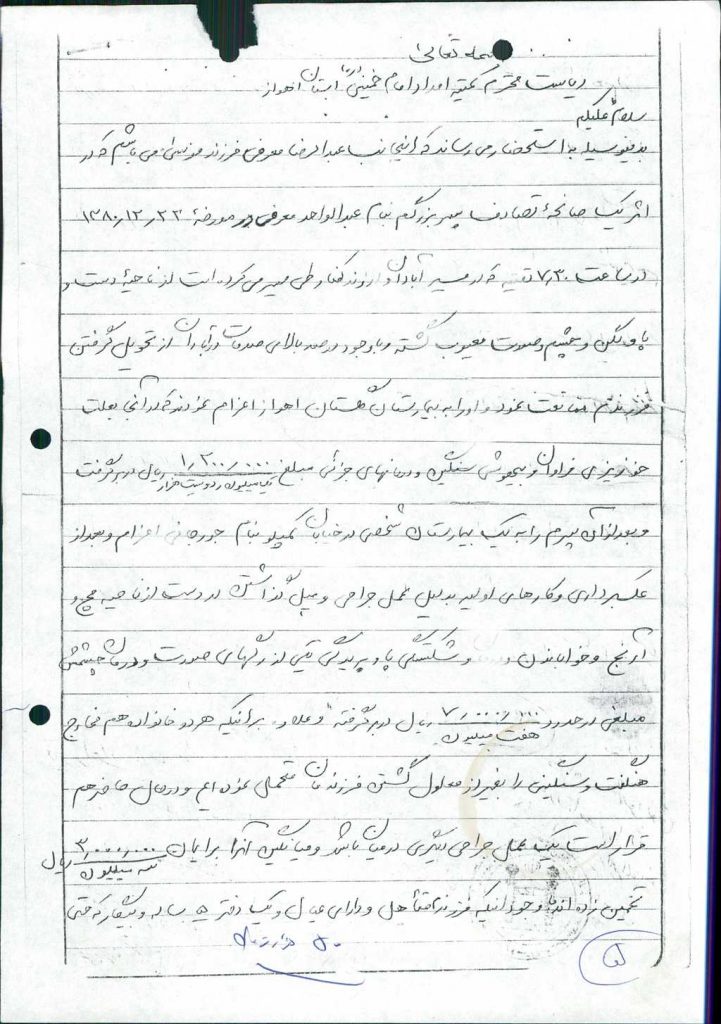 بسمه تعالی
ریاست محترم کمیته امداد امام خمینی (ره) استان اهواز
سلام علیکم
بدینوسیله به استحضار می رساند که اینجانب عبدالرضا معرفی فرزند موسی می باشم که در
اثر یک سانحهٔ تصادف پسر بزرگم بنام عبدالواحد معرفی در مورخهٔ ۱۳۸۰/۱۲/۲۲
در ساعت ۷/۳۰ دقیقه که در مسیر آبادان و اروندکنار طی مسیر می کرده است از ناحیهٔ دست و
پا و لگن و چشم و صورت معیوب گشته و با وجود درصد بالای صدمات در آبادان از تحویل گرفتن
فرزندم ممانعت نمود و او را به بیمارستان گلستان اهواز اعزام نمودند که در آنجا بعلت
خونریزی فراوان و بیهوشی سنگین و درمانهای جزئی مبلغ ۱/۲۰۰/۰۰۰ ریال دربر گرفت
یک میلیون و دویست هزار
و بعد از آن پسرم را به یک بیمارستان شخصی در خیابان کمپلو بنام جورجانی اعزام و بعد از
عکسبرداری و کارهای اولیه بدلیل عمل جراحی و میل گذاشتن در دست از ناحیه مچ و
آرنج و خواباندن و شکستگی پا و پریدگی یکی از رگهای صورت و درمان چشمش
مبلغی در حدود ۷/۰۰۰/۰۰۰ ریال دربر گرفته و علاوه برانیکه هر دو خانواده هم مخارج
هفت میلیون
هنگفت و سنگینی را بغیر از معلول گشتن فرزندمان متحمل نموده ایم و در حال حاضر هم
قرار است یک عمل جراحی دیگری در میان باشد و میانگین آنرا برایمان ۳/۰۰۰/۰۰۰ ریال
سه میلیون
تخمین زده اند و خود اینکه فرزندم متأهل و دارای عیال و یک دختر ۵ ساله و بیکار که حتی